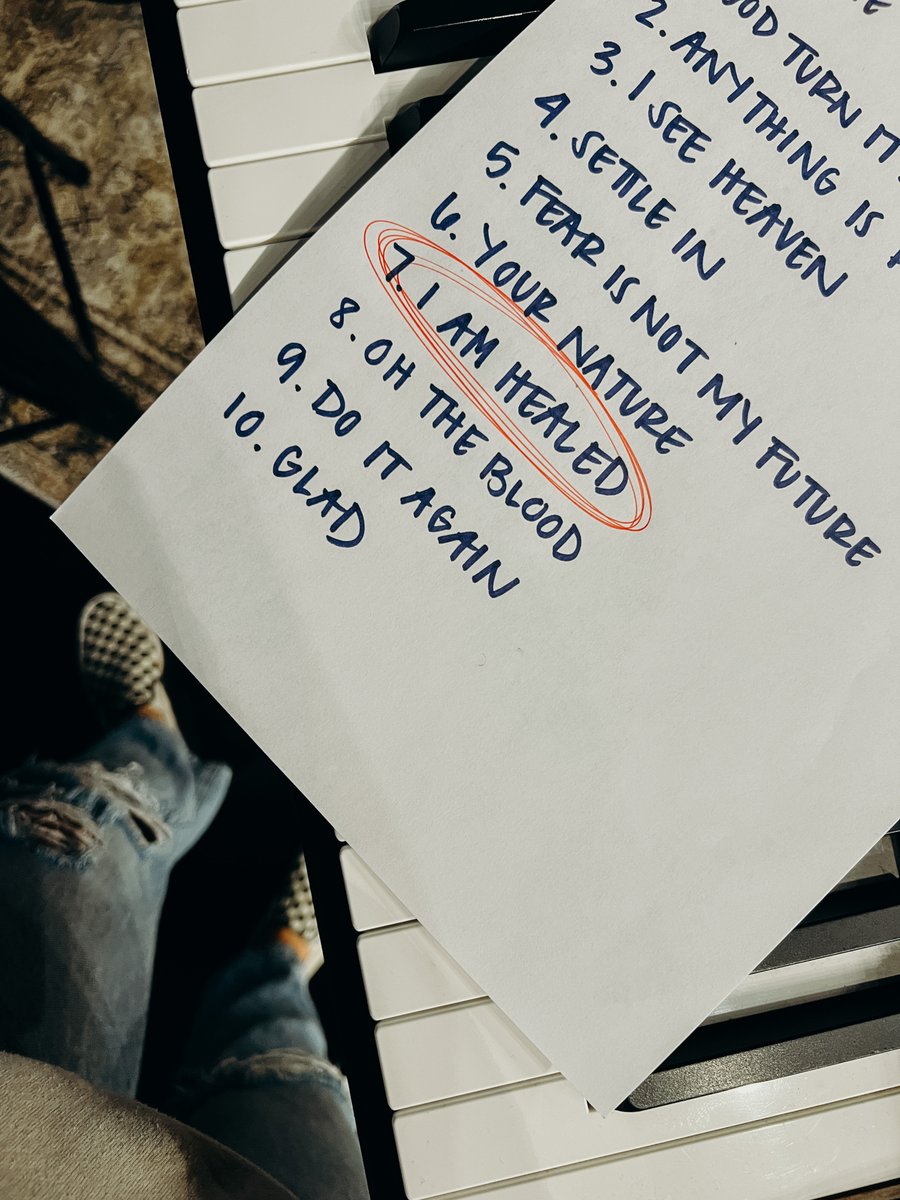 TURN IT
2. ANYTHING IS
3. I SEE HEAVEN
4. SETTLE IN
5. FEAR IS NOT MY FUTURE
6. YOUR NATURE
7. I AM HEALED
8. OH THE BLOOD
9. DO IT AGAIN
10. GLAD